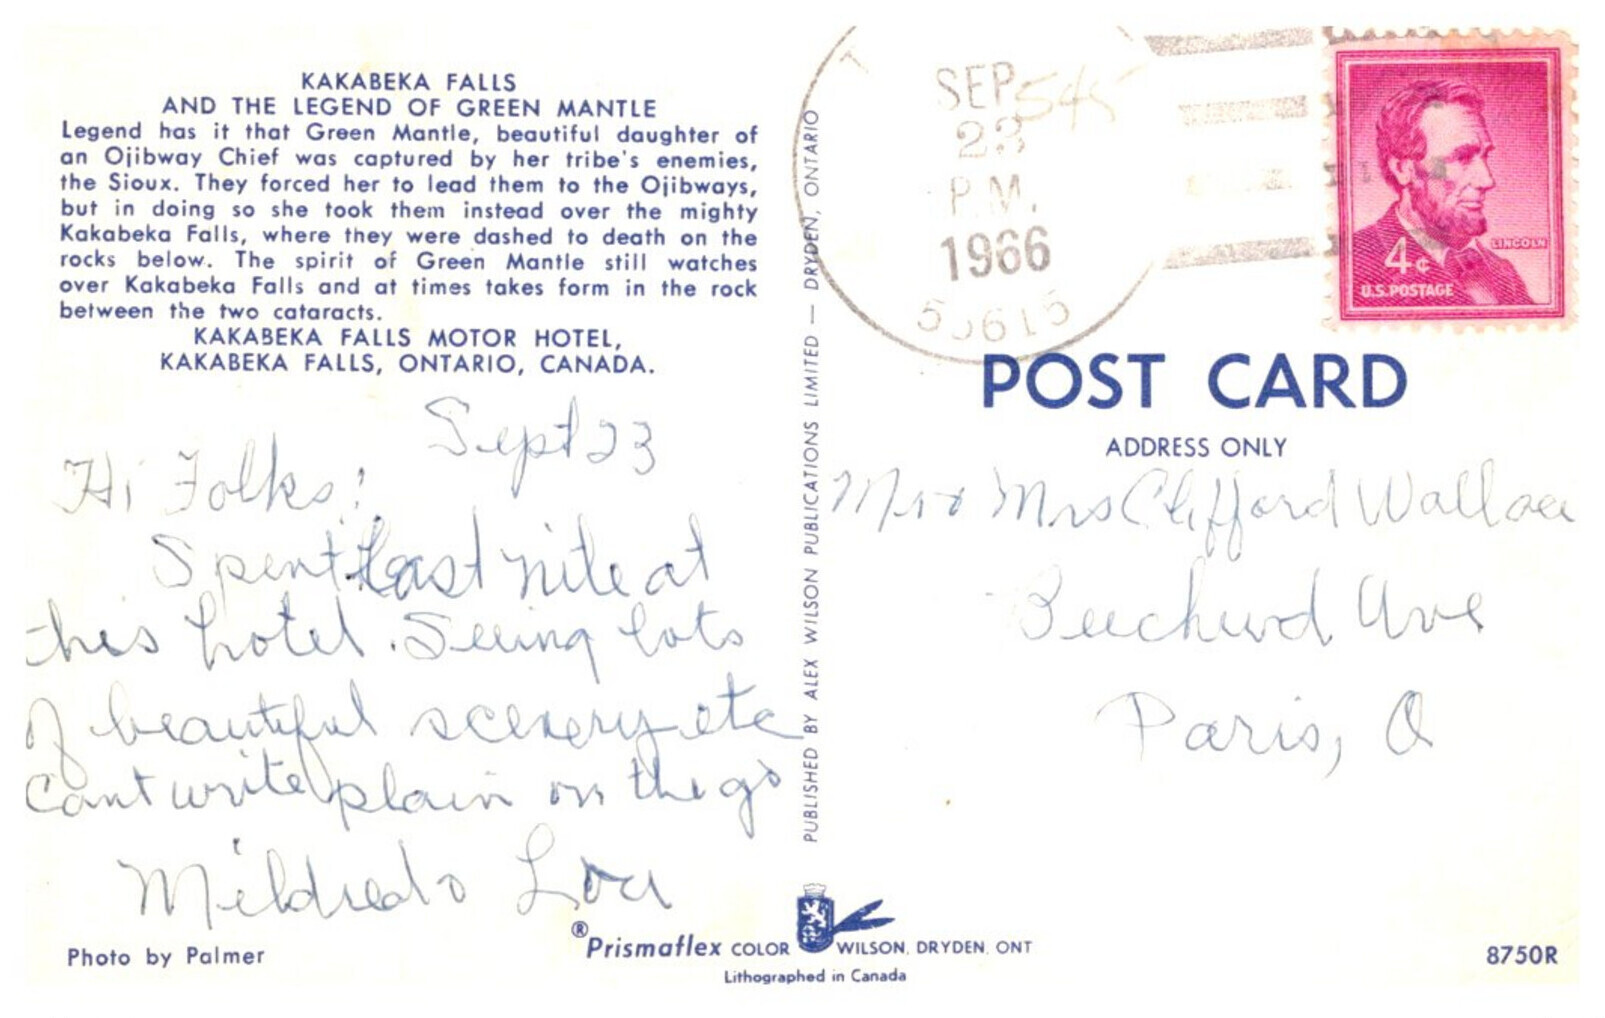 KAKABEKA FALLS
AND THE LEGEND OF GREEN MANTLE
Legend has it that Green Mantle, beautiful daughter of
an Ojibway Chief was captured by her tribe's enemies,
the Sioux. They forced her to lead them to the Ojibways,
but in doing so she took them instead over the mighty
Kakabeka Falls, where they were dashed to death on the
rocks below. The spirit of Green Mantle still watches
over Kakabeka Falls and at times takes form in the rock
between the two cataracts.
KAKABEKA FALLS MOTOR HOTEL,
KAKABEKA FALLS, ONTARIO, CANADA.
Sept 23
Hi Folks!
Spent Last nite at
this hotel. Seeing lots
of beautiful scenery etc
Cant write plain on the go
Mildred & Lou
Photo by Palmer
PUBLISHED BY ALEX WILSON PUBLICATIONS LIMITED — DRYDEN, ONTARIO
®Prismaflex COLOR WILSON, DRYDEN, ONT
Lithographed in Canada
SEP
23
P.M.
1966
545
LINCOLN
4¢
U.S. POSTAGE
POST CARD
ADDRESS ONLY
Mr & Mrs Clifford Wallace
Beechwd Ave
Paris, O
8750R